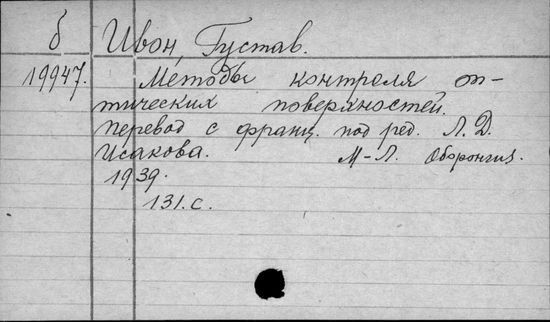 б Ивон, Густав.
19947. Методы контроля оп-
тических поверхностей.
Перевод с франц. под ред. Л. Д.
Исакова. М-Л. Оборонгиз.
1939.
131. с.